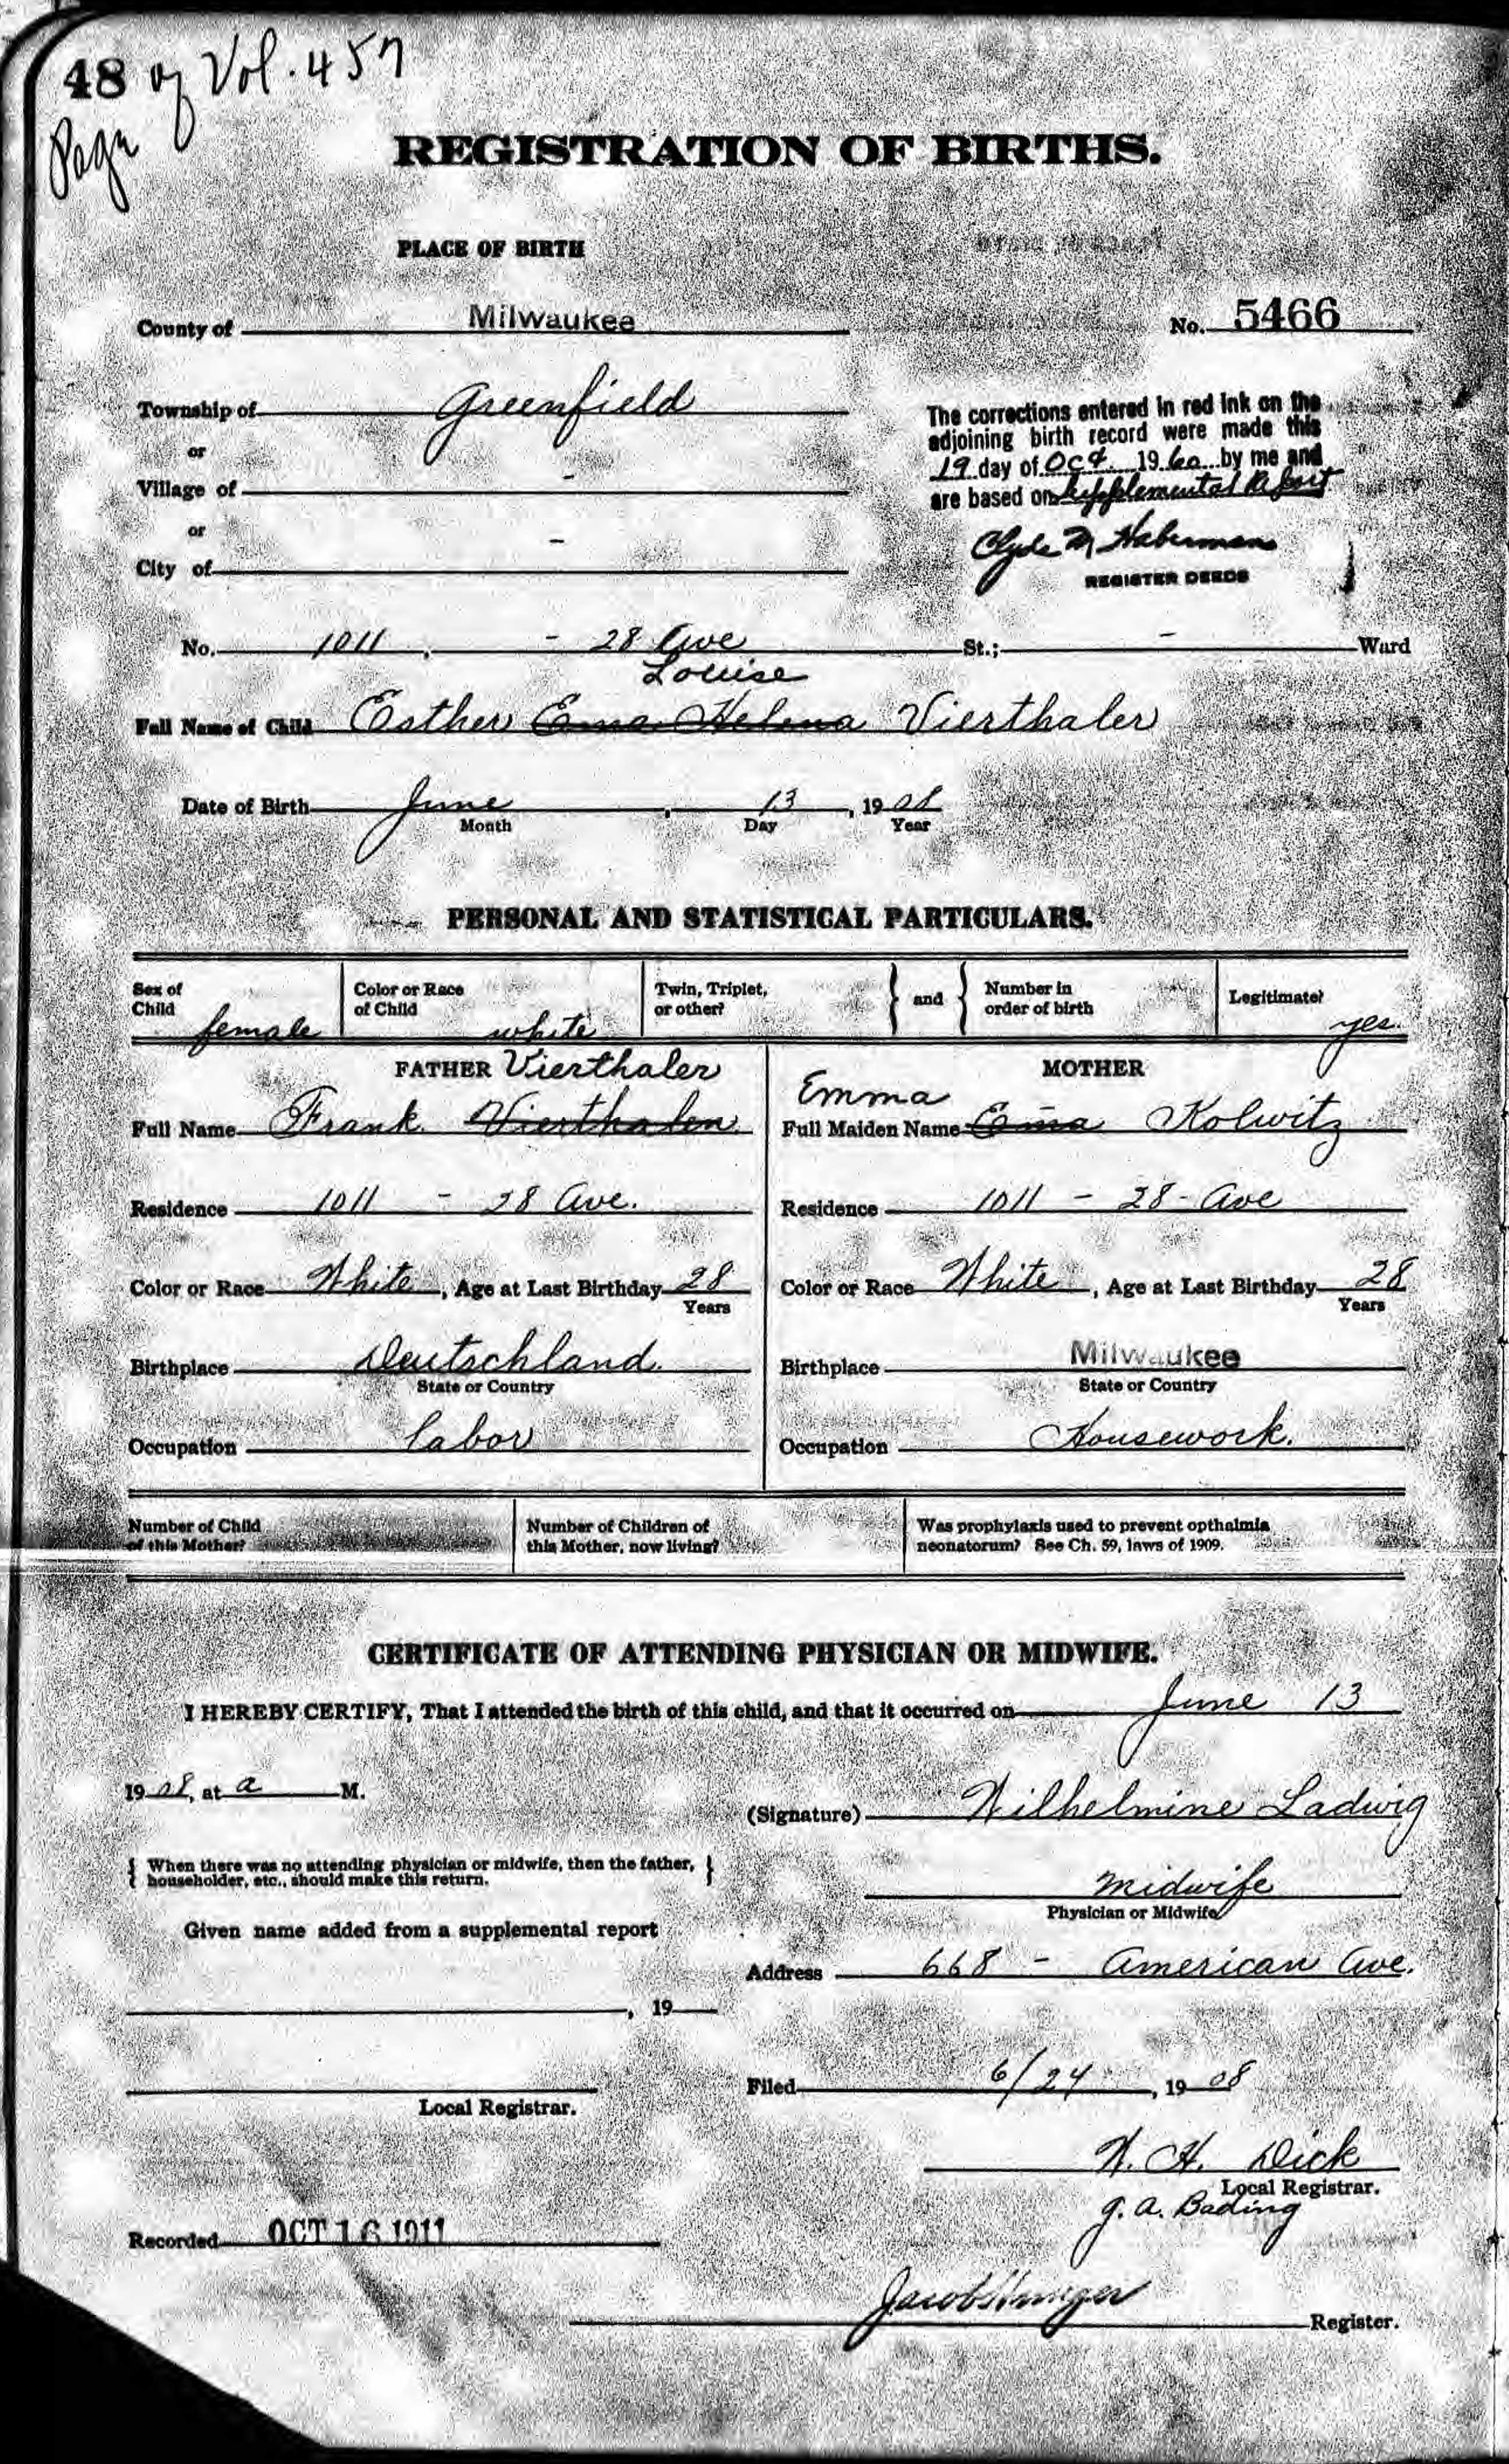 48 of Vol. 457
Page
REGISTRATION OF BIRTHS.
PLACE OF BIRTH
County of Milwaukee
No. 5466
Township of Greenfield
or
Village of -
or
City of -
The corrections entered in red ink on the
adjoining birth record were made this
19 day of Oct 1960 by me and
are based on supplemental Report
Clyde M Haberman
REGISTER DEEDS
No. 1011, - 28 Ave St.; - Ward
Louise
Full Name of Child Esther Ema Helena Vierthaler
Date of Birth June, 13, 1908
Month Day Year
PERSONAL AND STATISTICAL PARTICULARS.
Sex of Child female
Color or Race of Child white
Twin, Triplet, or other?
and
Number in order of birth
Legitimate? yes.
FATHER Vierthaler
Full Name Frank Vierthalen
Residence 1011 - 28 Ave.
Color or Race White, Age at Last Birthday 28
Years
Birthplace Deutschland.
State or Country
Occupation labor
MOTHER
Emma
Full Maiden Name Ema Kolwitz
Residence 1011 - 28 - Ave
Color or Race White, Age at Last Birthday 28
Years
Birthplace Milwaukee
State or Country
Occupation Housework.
Number of Child
of this Mother?
Number of Children of
this Mother, now living?
Was prophylaxis used to prevent opthalmia
neonatorum? See Ch. 59, laws of 1909.
CERTIFICATE OF ATTENDING PHYSICIAN OR MIDWIFE.
I HEREBY CERTIFY, That I attended the birth of this child, and that it occurred on June 13
1908, at a M.
(Signature) Wilhelmine Ladwig
{ When there was no attending physician or midwife, then the father,
householder, etc., should make this return. }
midwife
Physician or Midwife
Given name added from a supplemental report
Address 668 - American Ave.
, 19
Filed 6/24, 1908
Local Registrar.
W. H. Dick
Local Registrar.
G. A. Bading
Recorded OCT 16 1911
Jacob Hunger
Register.